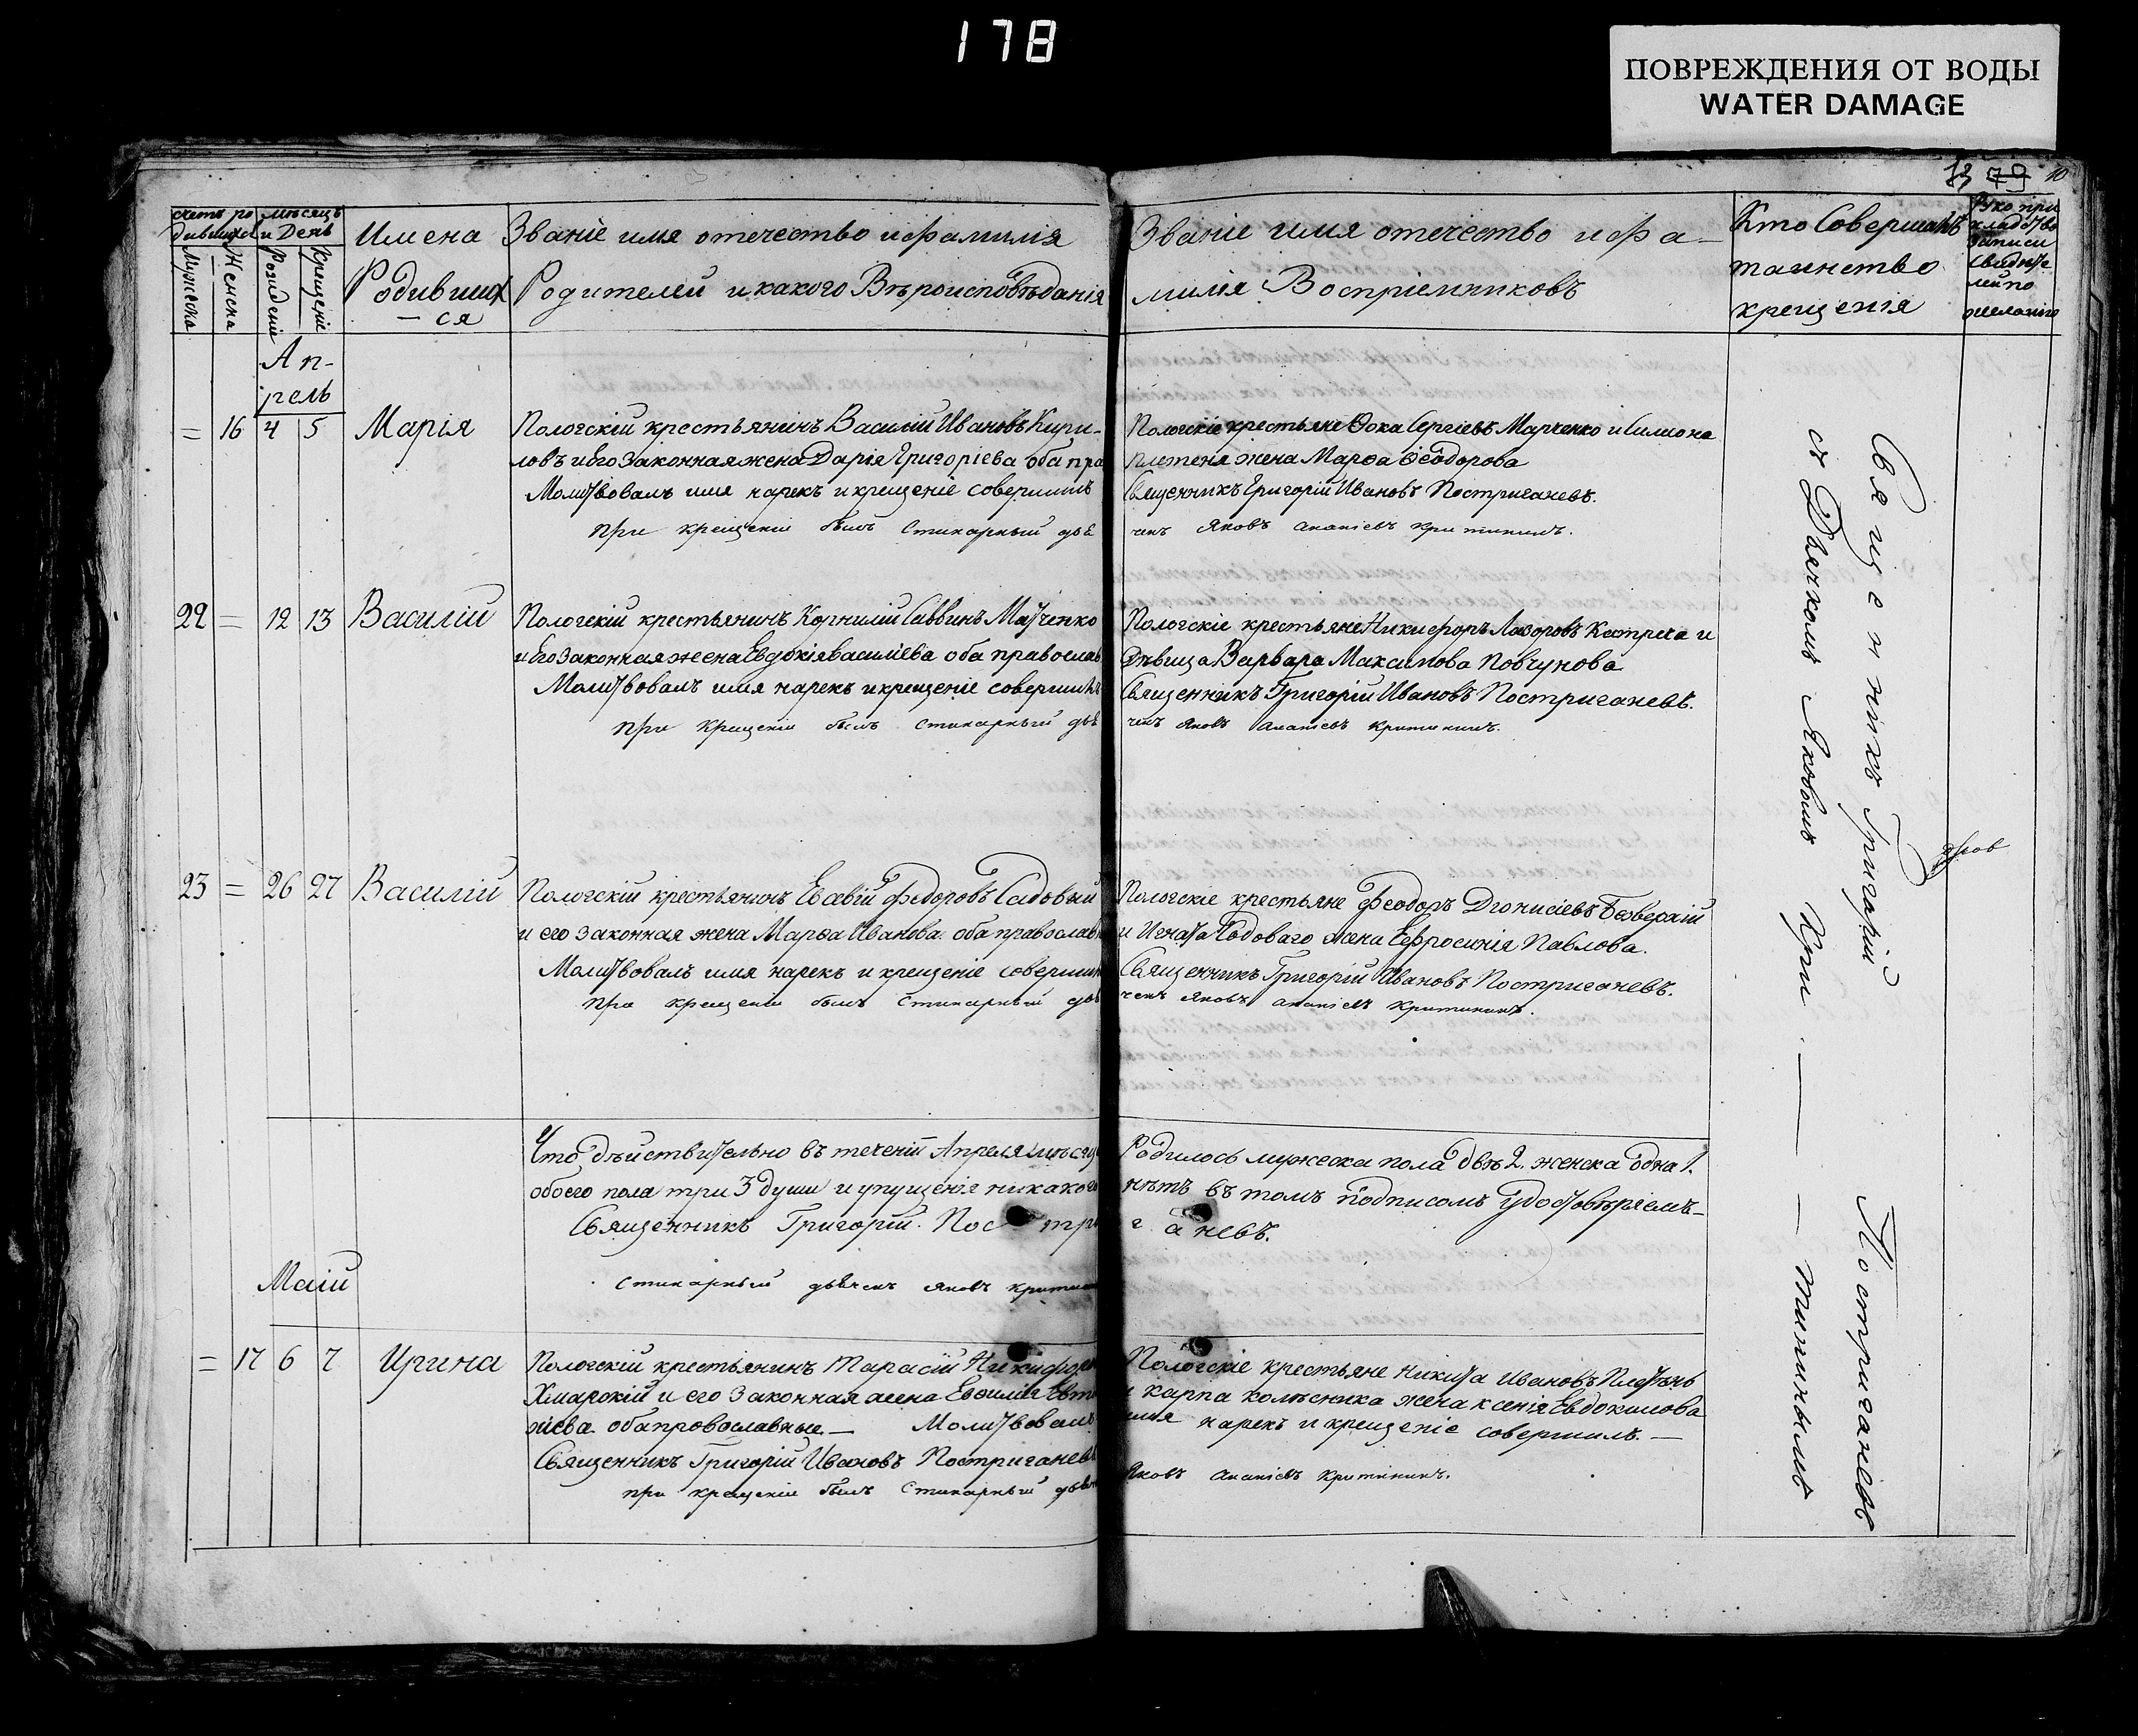 178
ПОВРЕЖДЕНИЯ ОТ ВОДЫ
WATER DAMAGE
79 10
счетъ ро
дившихся
Мужеска
Женска
мѣсяцъ
и День
Рожденіе
Крещеніе
Имена
Родивших
— ся
Званіе имя отечество и фамилія
Родителей и какого Вѣроисповѣданія
Званіе имя отечество и фа-
милія Воспріемниковъ
Кто Совершалъ
таинство
крещенія
Руко при
кладство
записи
свидѣте
лей по
желанію
Ап-
рель
= 16 4 5 Марія
Пологскій крестьянинъ Василій Ивановъ Кири-
ловъ и его Законная жена Дарія Григоріева оба пра
Молитвовалъ имя нарекъ и крещеніе совершилъ
при крещеніи былъ Стихарный дьѣ
Пологскіе крестьяне Ѳока Сергіевъ Марченко и Симона
Плетеня жена Марѳа Ѳеодорова
Священникъ Григорій Ивановъ Постриганевъ.
чекъ Яковъ Ананіевъ Критининъ.
22 = 12 13 Василій
Пологскій крестьянинъ Корнилій Саввинъ Матченко
и Его Законная жена Евдокія Василіева оба православ
Молитвовалъ имя нарекъ и крещеніе совершилъ
при Крещеніи былъ Стихарный дьѣ
Пологскіе крестьяне Никифоръ Лазоровъ Катрега и
Дѣвица Варвара Максимова Повчунова
Священникъ Григорій Ивановъ Постриганевъ.
чекъ Яковъ Ананіевъ Критининъ.
23 = 26 27 Василій
Пологскій крестьянинъ Евсевій Федоровъ Садовый
и его законная жена Марѳа Иванова. оба православн
Молитвовалъ имя нарекъ и крещеніе совершилъ
при крещеніи былъ Стихарный дьѣ
Пологскіе крестьяне Феодоръ Діонисіевъ Безверхій
и Игната Садоваго жена Ефросинія Павлова.
Священникъ Григорій Ивановъ Постриганевъ.
чекъ Яковъ Ананіевъ Критининъ.
Что дѣйствительно въ теченіи Апреля мѣсяца
обоего пола три 3 души и упущенія никакого
Священникъ Григорій. Постри
Стихарный дьѣчекъ Яковъ Критин
Родилось мужеска пола двѣ 2. женска одна 1.
нѣтъ въ томъ подписомъ удостовѣряемъ—
ганевъ.
Маій
= 17 6 7 Ирина
Пологскій крестьянинъ Тарасій Никифоров
Хмарскій и его Законная жена Евфимія Евти
хіева оба православные. — Молитвовалъ
Священникъ Григорій Ивановъ Постриганевъ
при крещеніи былъ Стихарный дьѣч
Пологскіе крестьяне Никита Ивановъ Плетень
и карпа колѣсника жена ксенія Евдокимова
имя нарекъ и крещеніе совершилъ. —
Яковъ Ананіевъ Критининъ.
Священникъ Григорій Постриганевъ
съ Дьячкомъ Яковомъ Кри — — тининымъ